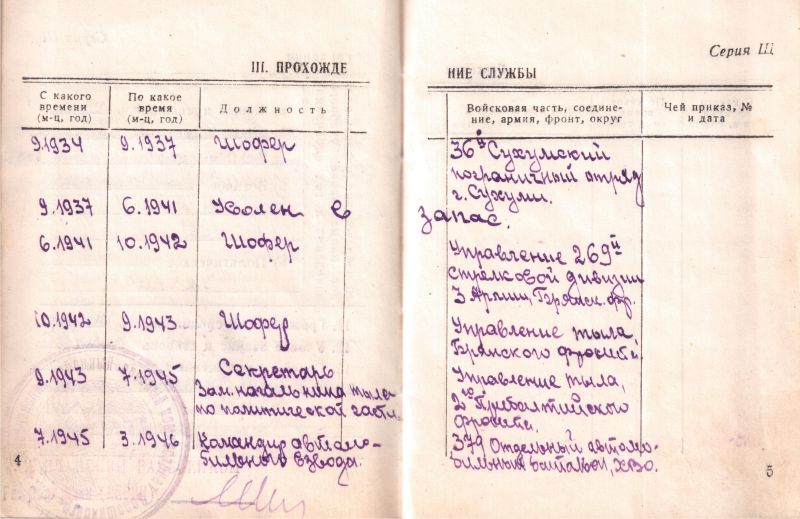 III. ПРОХОЖДЕ
С какого времени (м-ц, год)
По какое время (м-ц, год)
Должность
9.1934 9.1937 Шофер
9.1937 6.1941 Уволен в
6.1941 10.1942 Шофер
10.1942 9.1943 Шофер
9.1943 7.1945 Секретарь
Зам. начальника тыла
по политической части.
7.1945 3.1946 Командир автомо-
бильного взвода.
4
Серия Щ
НИЕ СЛУЖБЫ
Войсковая часть, соедине-
ние, армия, фронт, округ
Чей приказ, №
и дата
36й Сухумский
пограничный отряд
г. Сухуми.
запас.
Управление 269й
стрелковой дивизии
3 Армии, Брянск. фр.
Управление тыла,
Брянского фронта.
Управление тыла,
2го Прибалтийского
фронта.
379 Отдельный автомо-
бильный батальон, ХВО.
5